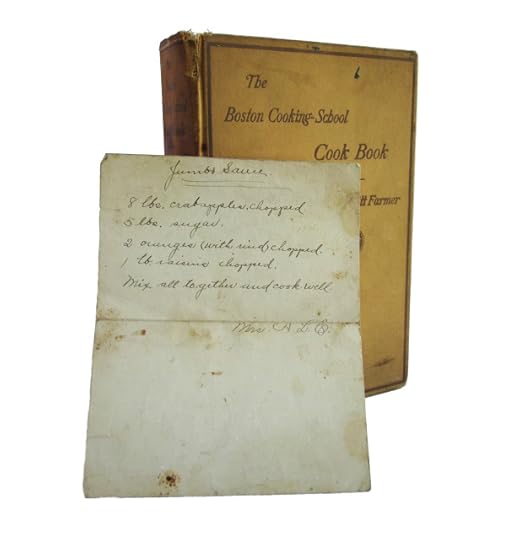 The
Boston Cooking-School
Cook Book
tt Farmer
Jumbo Sauce
8 lbs. crabapples, chopped
5 lbs. sugar.
2 oranges (with rind) chopped.
1 lb raisins chopped.
Mix all together and cook well
Mrs. A. L. C.